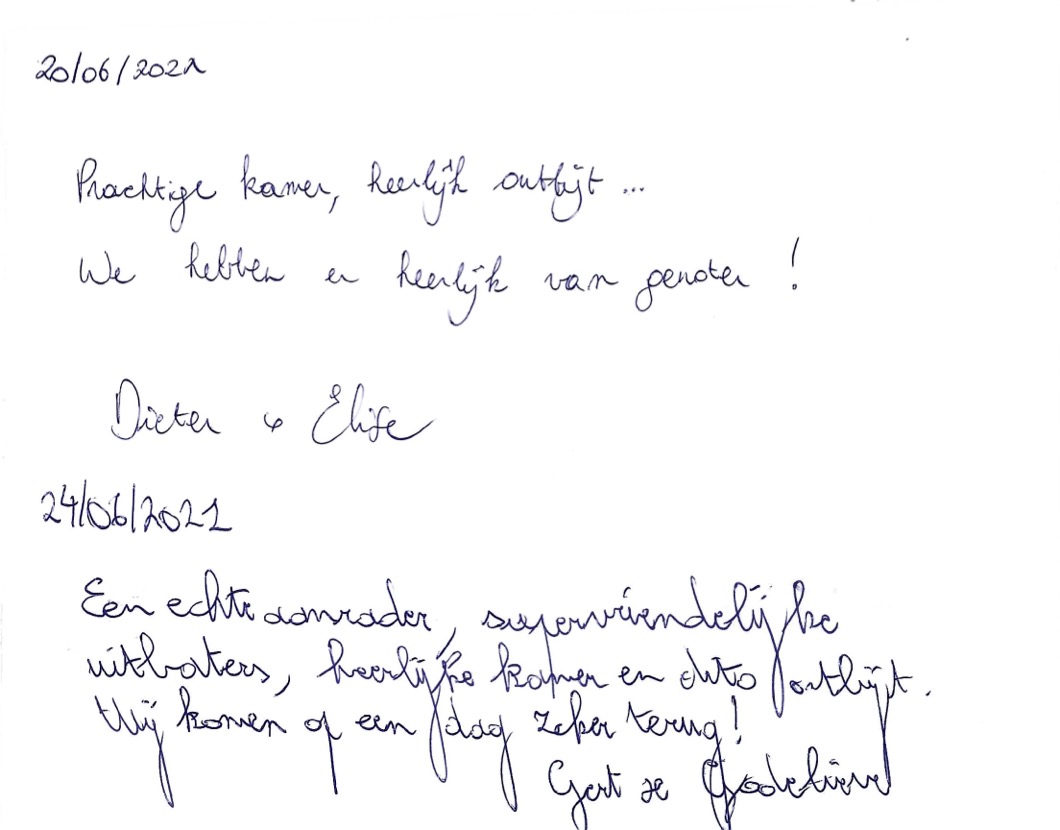 20/06/2021
Prachtige kamer, heerlijk ontbijt ...
We hebben er heerlijk van genoten !
Dieter & Elise
24/06/2021
Een echte aanrader, supervriendelijke
uitbaters, heerlijke kamer en dito ontbijt.
Wij komen op een dag zeker terug!
Gert & Godelieve